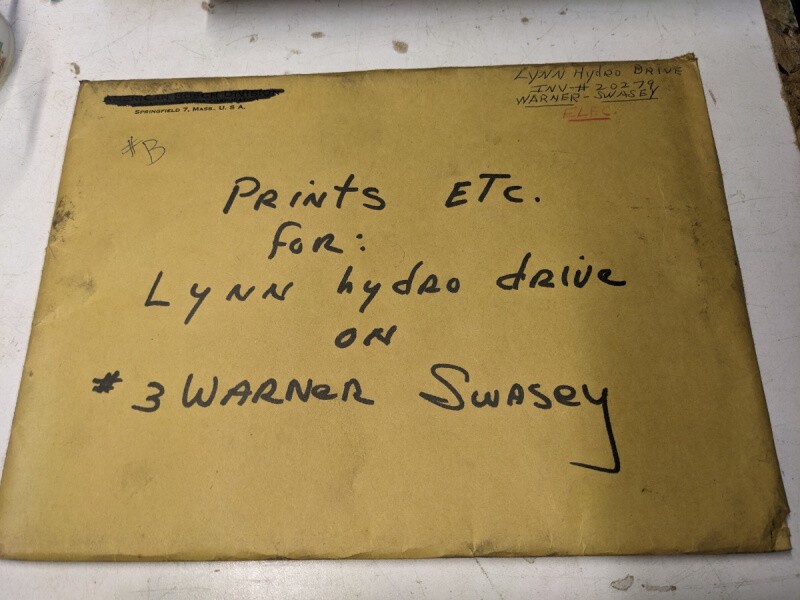 SPRINGFIELD 7, MASS., U. S. A.
LYNN HYDRO DRIVE
INV # 20279
WARNER-SWASEY
ELEC.
#B
PRINTS ETC.
FOR:
LYNN hydRO dRIVE
ON
# 3 WARNER SWASEY